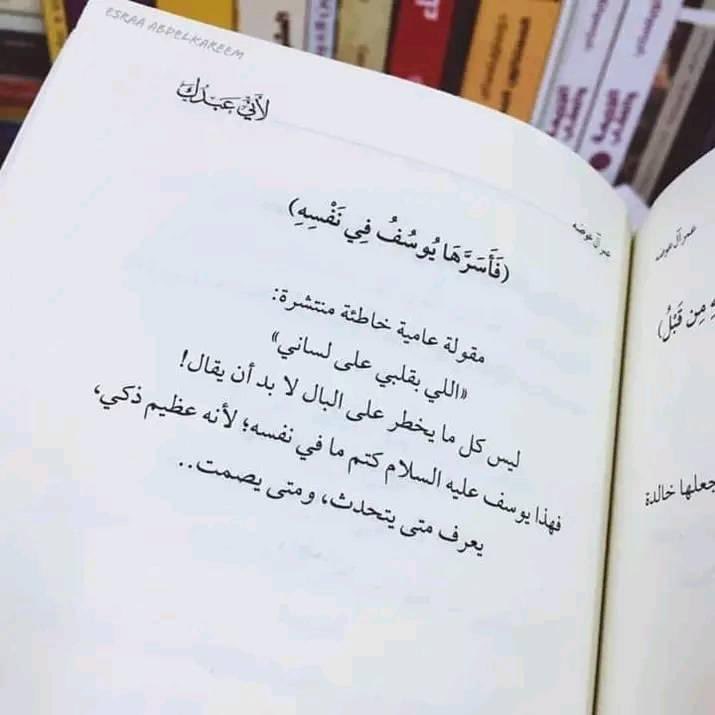 ESRAA ABDELKAREEM
لأني عَبدُكَ
عمر آل عوضه
(فَأَسَرَّهَا يُوسُفُ فِي نَفْسِهِ)
مقولة عامية خاطئة منتشرة:
«اللي بقلبي على لساني»
ليس كل ما يخطر على البال لا بد أن يقال!
فهذا يوسف عليه السلام كتم ما في نفسه؛ لأنه عظيم ذكي،
يعرف متى يتحدث، ومتى يصمت..
عمر آل عوضه
مِن قَبْلُ)
جعلها خالدة